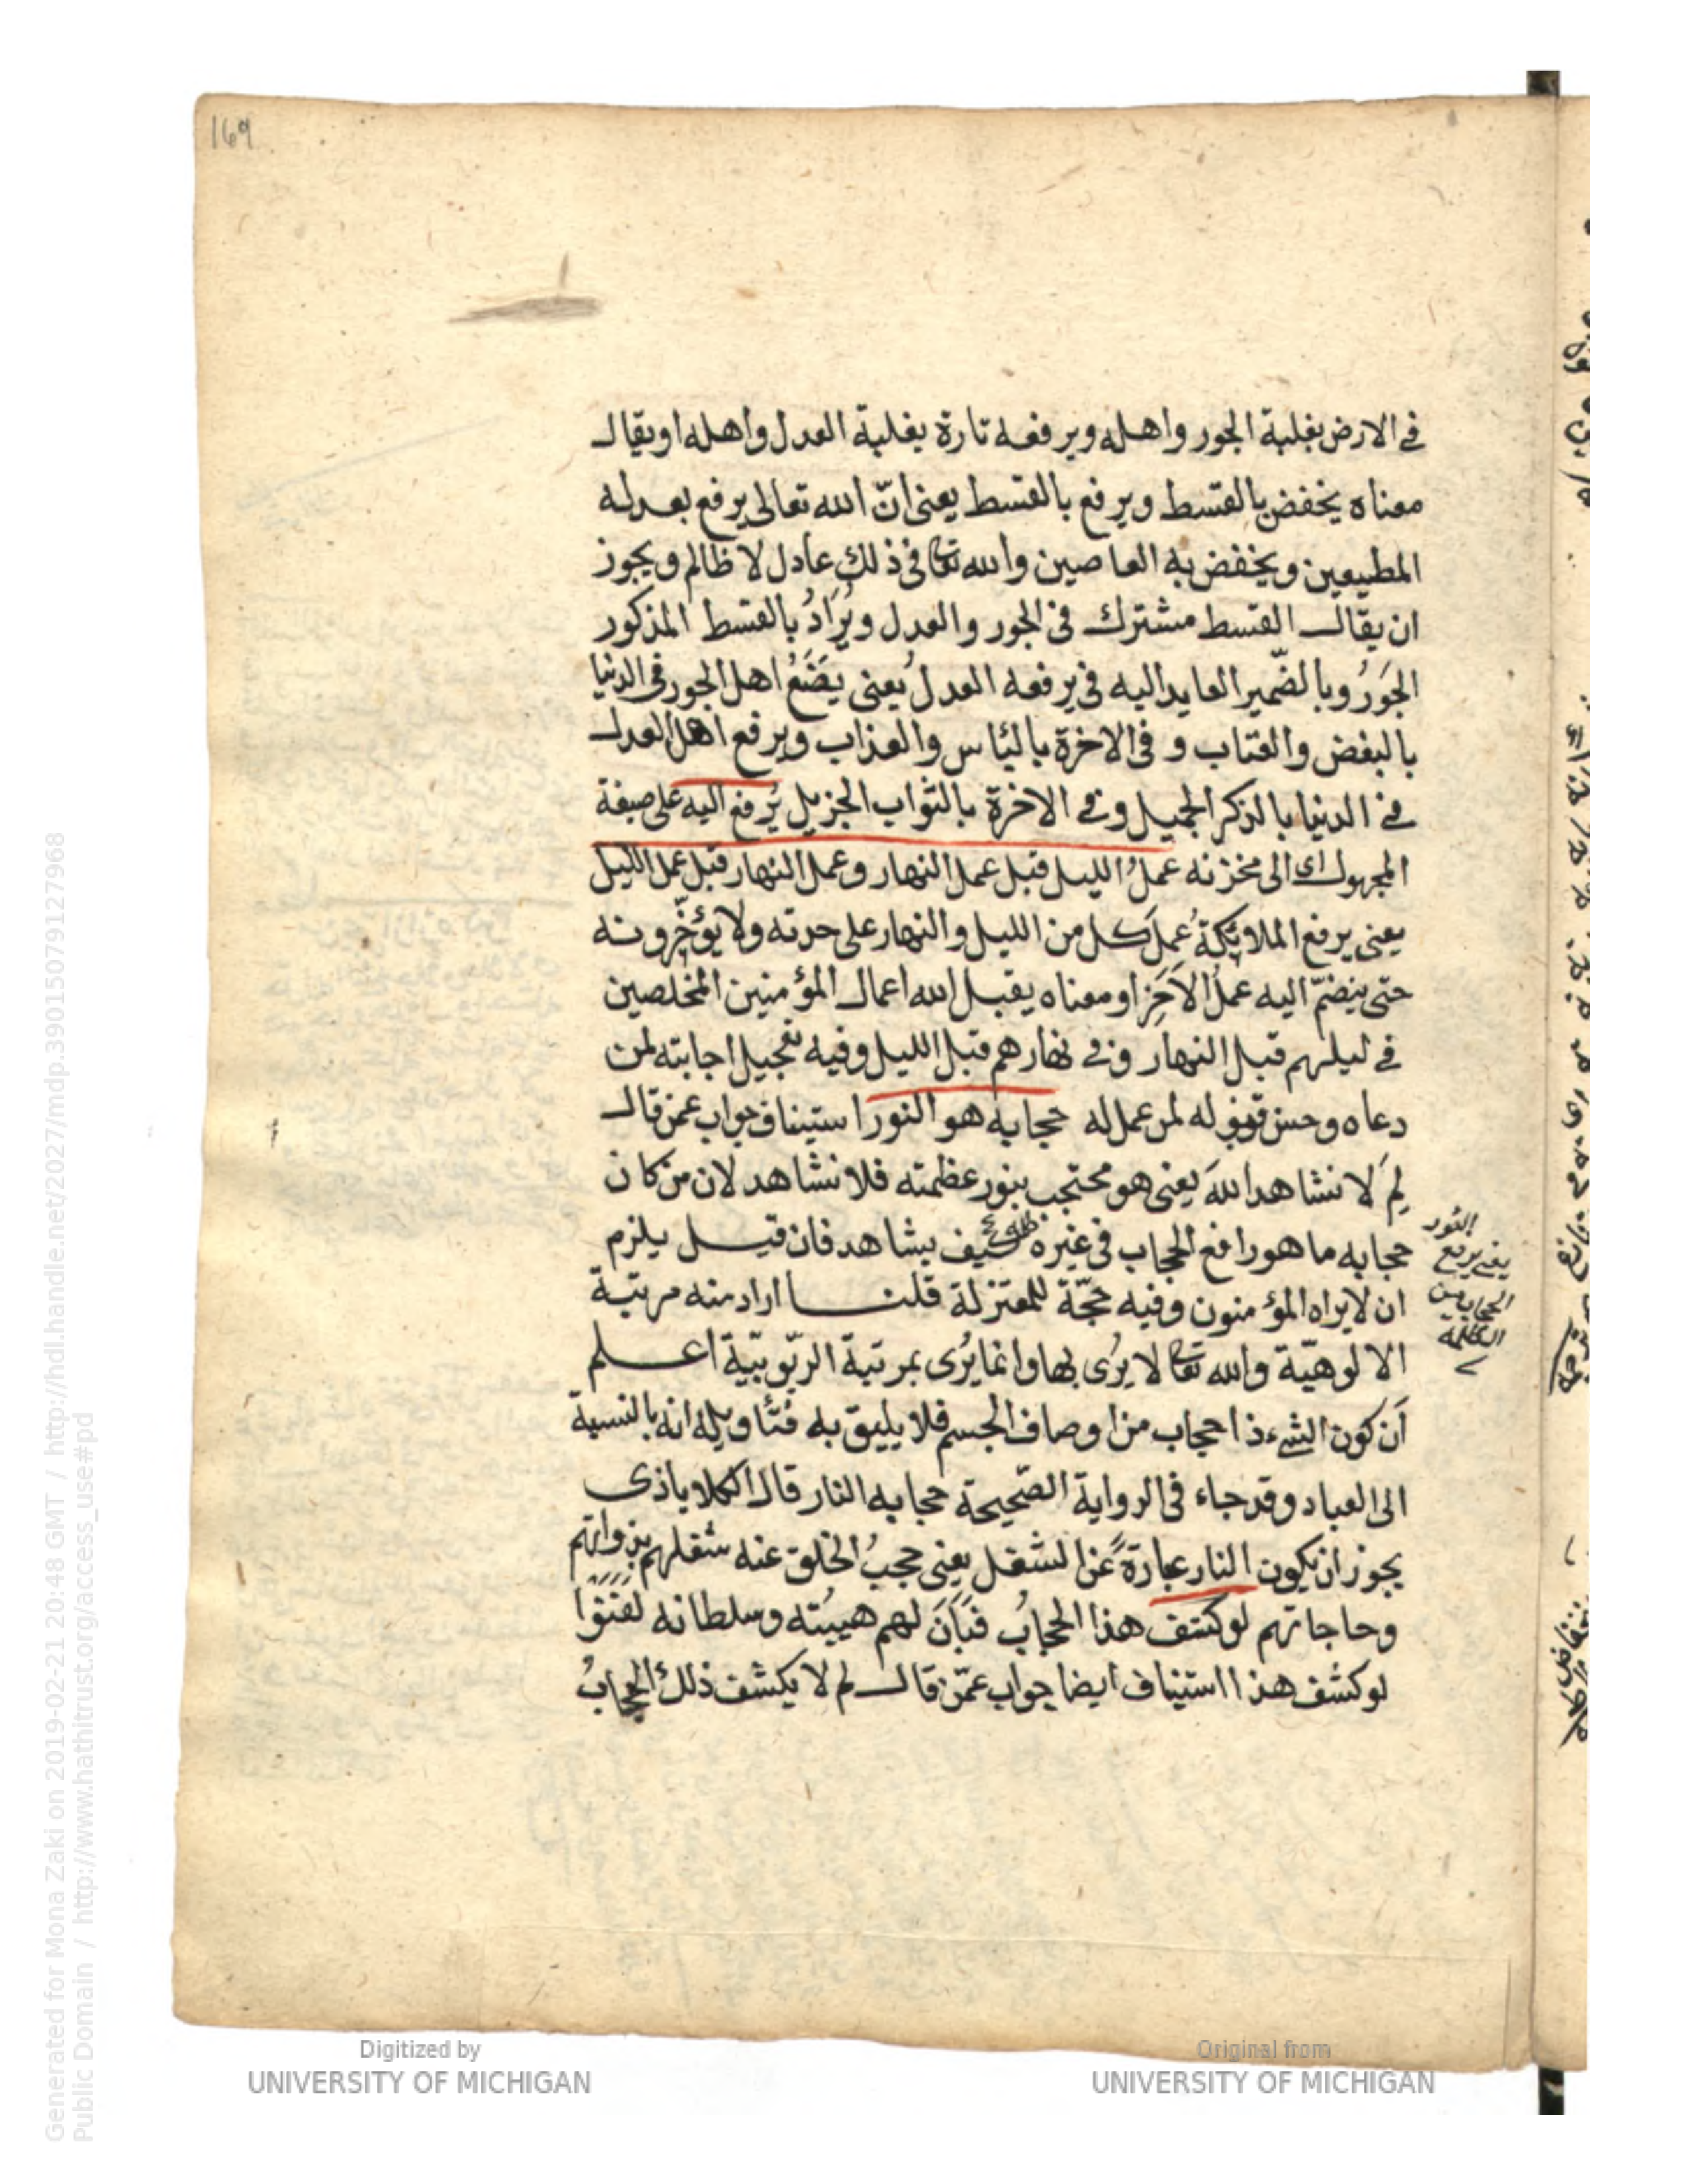 169
في الارض بغلبة الجور واهله ويرفعه تارة بغلبة العدل واهله او يقال
معناه يخفض بالقسط ويرفع بالقسط يعني انّ الله تعالى يرفع بعدله
المطيعين ويخفض به العاصين والله تعا في ذلك عادل لا ظالم ويجوز
ان يقال القسط مشترك في الجور والعدل ويُرَادُ بالقسط المذكور
الجَورُ وبالضّمير العايد اليه في يرفعه العدلُ يعني يَضَعُ اهل الجور في الدنيا
بالبغض والعتاب و في الاخرة بالياس والعذاب ويرفع اهل العدل
في الدنيا بالذكر الجميل وفي الاخرة بالثواب الجزيل يُرفع اليه على صيغة
المجهول اى الى مخزنه عملُ الليل قبل عمل النهار وعمل النهار قبل عمل الليل
يعني يرفع الملايكةُ عملَ كل من الليل والنهار على حدته ولا يؤخّرونه
حتى ينضمّ اليه عملُ الآخَرِ او معناه يقبل الله اعمال المؤمنين المخلصين
في ليلهم قبل النهار وفي نهارهم قبل الليل وفيه تعجيل اجابته لمن
دعاه وحسن قبوله لمن عمل له حجابه هو النور استيناف جواب عمن قال
لِمَ لا نشاهد اللهَ يعني هو محتجب بنور عظمته فلا نشاهد لان من كان
حجابه ما هو رافع الحجاب في غيره كيف يشاهد فان قيل يلزم
ان لا يراه المؤمنون وفيه حجّة للمعتزلة قلنا اراد منه مرتبة
الالوهيّة والله تعا لا يُرى بها وانما يُرى بمرتبة الربّوبيّة اعلم
أن كون الشيء ذا حجاب من اوصاف الجسم فلا يليق به فتاويله انه بالنسبة
الى العباد وقد جاء في الرواية الصّحيحة حجابه النار قال الكلاباذى
يجوز ان يكون النار عبارةً عن الشغل يعني حجبُ الخلق عنه شغلهم بذواتهم
وحاجاتهم لو كشف هذا الحجابُ فبَانَ لهم هيبته وسلطانه لفَنَوْا
لو كشف هذا استيناف ايضا جواب عمّن قال لم لا يكشف ذلك الحجابُ
النور
يعني يرفع
الحجاب من
الظلمة
Generated for Mona Zaki on 2019-02-21 20:48 GMT / http://hdl.handle.net/2027/mdp.39015079127968
Public Domain / http://www.hathitrust.org/access_use#pd
Digitized by
UNIVERSITY OF MICHIGAN
Original from
UNIVERSITY OF MICHIGAN